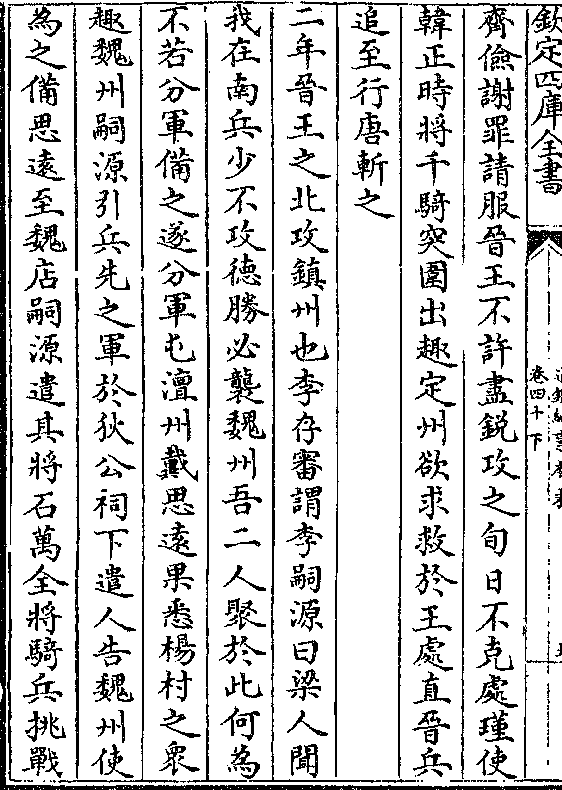 欽定四庫全書
卷四十下
齊儉謝罪請服晉王不許盡鋭攻之旬日不克處瑾使
韓正時將千騎突圍出趣定州欲求救於王處直晉兵
追至行唐斬之
二年晉王之北攻鎮州也李存審謂李嗣源曰梁人聞
我在南兵少不攻德勝必襲魏州吾二人聚於此何為
不若分軍備之遂分軍屯澶州戴思遠果悉楊村之衆
趣魏州嗣源引兵先之軍於狄公祠下遣人告魏州使
為之備思遠至魏店嗣源遣其將石萬全將騎兵挑戰